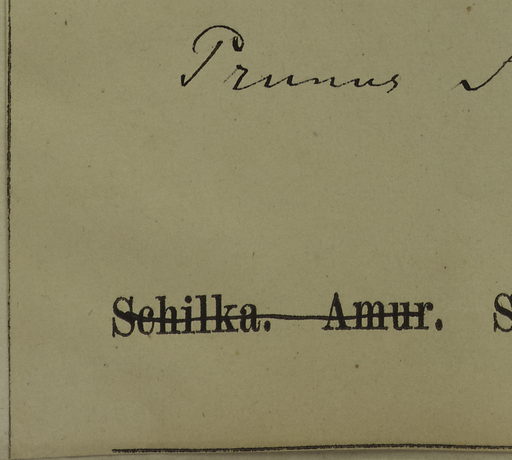 Prunus
Schilka. Amur. S